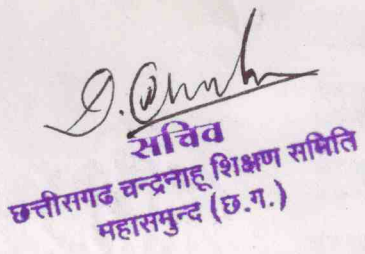 सचिव
छत्तीसगढ चन्द्रनाहू शिक्षण समिति
महासमुन्द (छ.ग.)